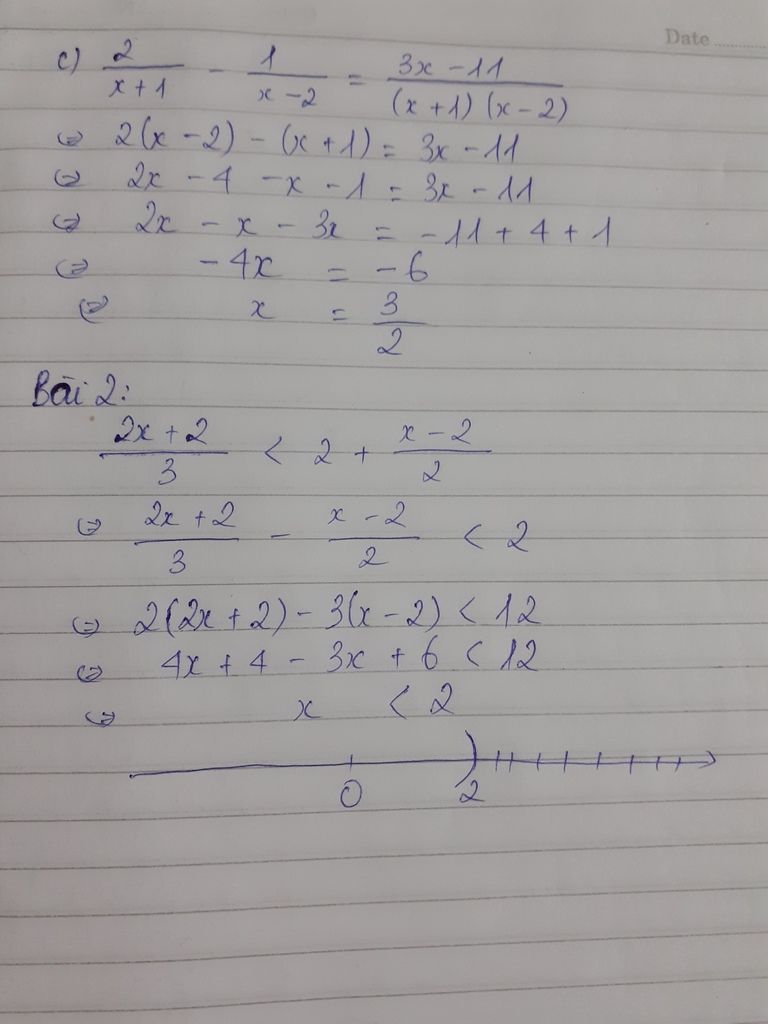 Date
c) 2/(x+1) - 1/(x-2) = (3x-11)/((x+1)(x-2))
⇔ 2(x-2) - (x+1) = 3x-11
⇔ 2x - 4 - x - 1 = 3x - 11
⇔ 2x - x - 3x = -11 + 4 + 1
⇔ -4x = -6
⇔ x = 3/2
Bài 2:
(2x+2)/3 < 2 + (x-2)/2
⇔ (2x+2)/3 - (x-2)/2 < 2
⇔ 2(2x+2) - 3(x-2) < 12
⇔ 4x + 4 - 3x + 6 < 12
⇔ x < 2
0 2